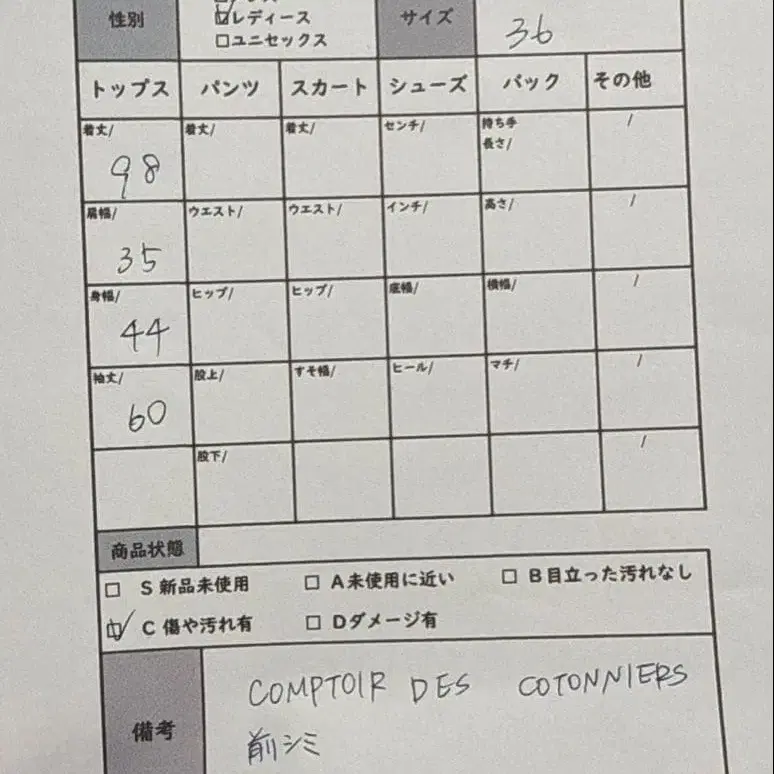 性別
☑レディース
□ユニセックス
サイズ
36
トップス パンツ スカート シューズ バック その他
着丈/ 98 着丈/ 着丈/ センチ/ 持ち手長さ/ /
肩幅/ 35 ウエスト/ ウエスト/ インチ/ 高さ/ /
身幅/ 44 ヒップ/ ヒップ/ 底幅/ 横幅/ /
袖丈/ 60 股上/ すそ幅/ ヒール/ マチ/ /
股下/ /
商品状態
□ S 新品未使用 □ A未使用に近い □ B目立った汚れなし
☑ C 傷や汚れ有 □ Dダメージ有
備考
COMPTOIR DES COTONNIERS
前シミ